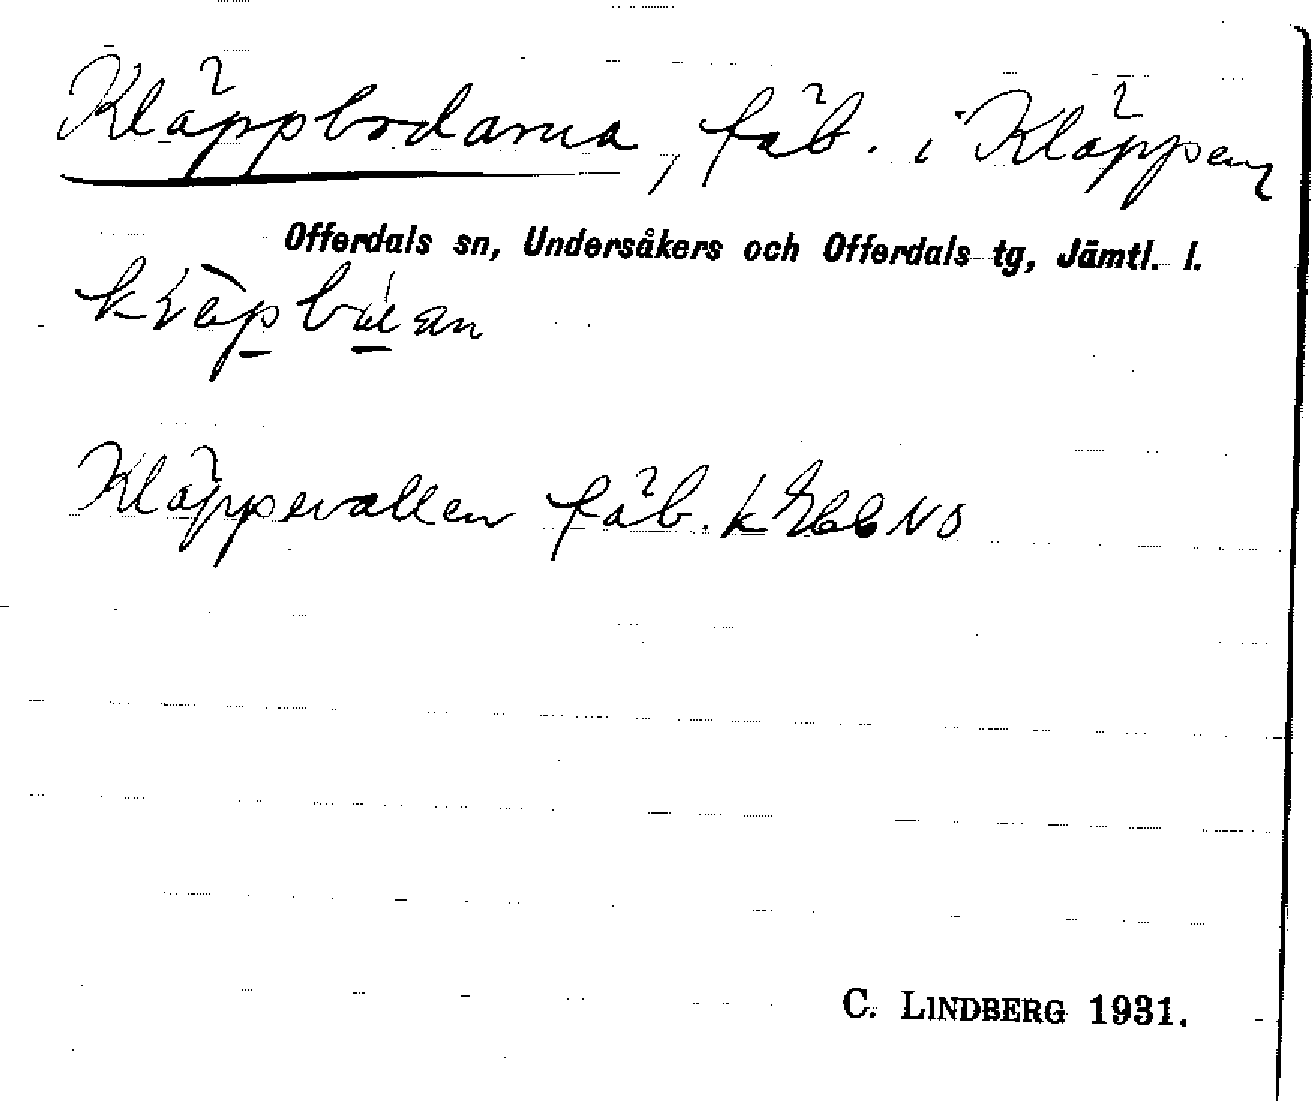 Kläppbodarna, fäb. i Kläppen
Offerdals sn, Undersåkers och Offerdals tg, Jämtl. l.
Kläppevallen fäb. k
C. LINDBERG 1931.